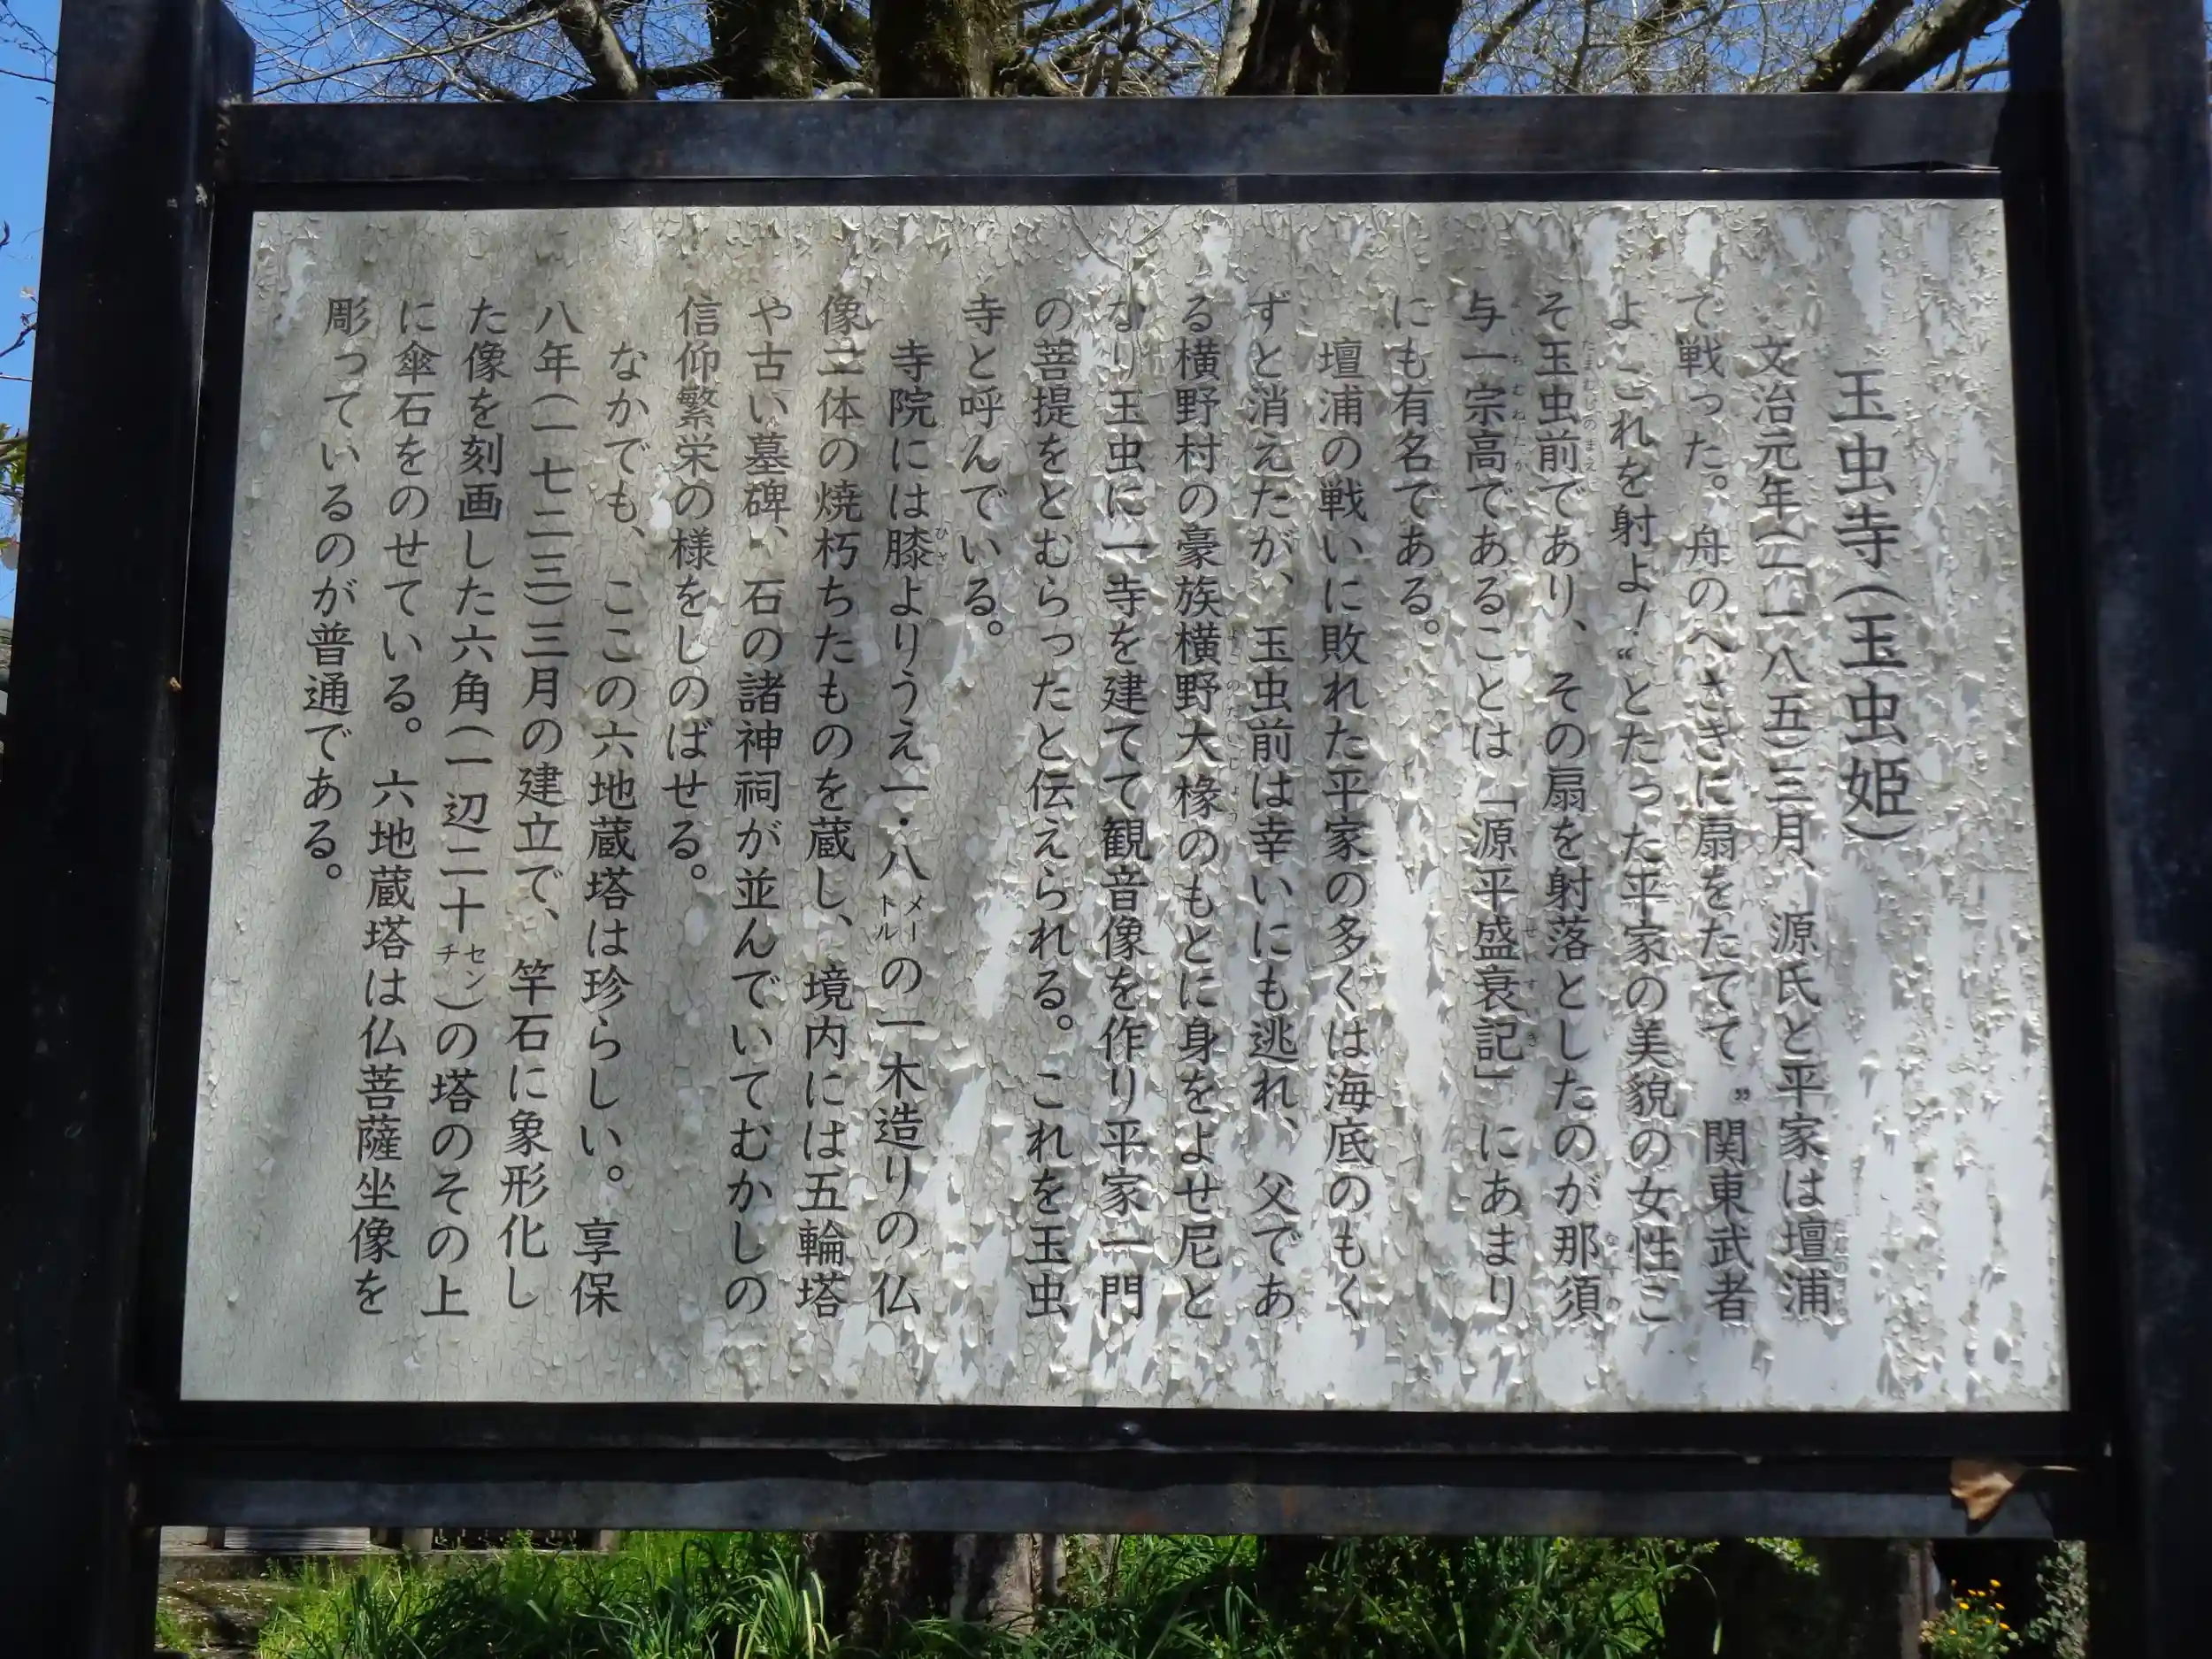 玉虫寺(玉虫姫)
文治元年(一一八五)三月、源氏と平家は壇浦
て戦った。舟のへさきに扇をたてて〝関東武者
よこれを射よ!〟とたった平家の美貌の女性こ
そ玉虫前であり、その扇を射落としたのが那須
与一宗高であることは「源平盛衰記」にあまり
にも有名である。
壇浦の戦いに敗れた平家の多くは海底のもく
ずと消えたが、玉虫前は幸いにも逃れ、父であ
る横野村の豪族横野大椽のもとに身をよせ尼と
なり玉虫に一寺を建てて観音像を作り平家一門
の菩提をとむらったと伝えられる。これを玉虫
寺と呼んでいる。
寺院には膝よりうえ一・八メートルの一木造りの仏
像二体の焼朽ちたものを蔵し、境内には五輪塔
や古い墓碑、石の諸神祠が並んでいてむかしの
信仰繁栄の様をしのばせる。
なかでも、ここの六地蔵塔は珍らしい。享保
八年(一七二三)三月の建立で、竿石に象形化し
た像を刻画した六角(一辺二十センチ)の塔のその上
に傘石をのせている。六地蔵塔は仏菩薩坐像を
彫っているのが普通である。